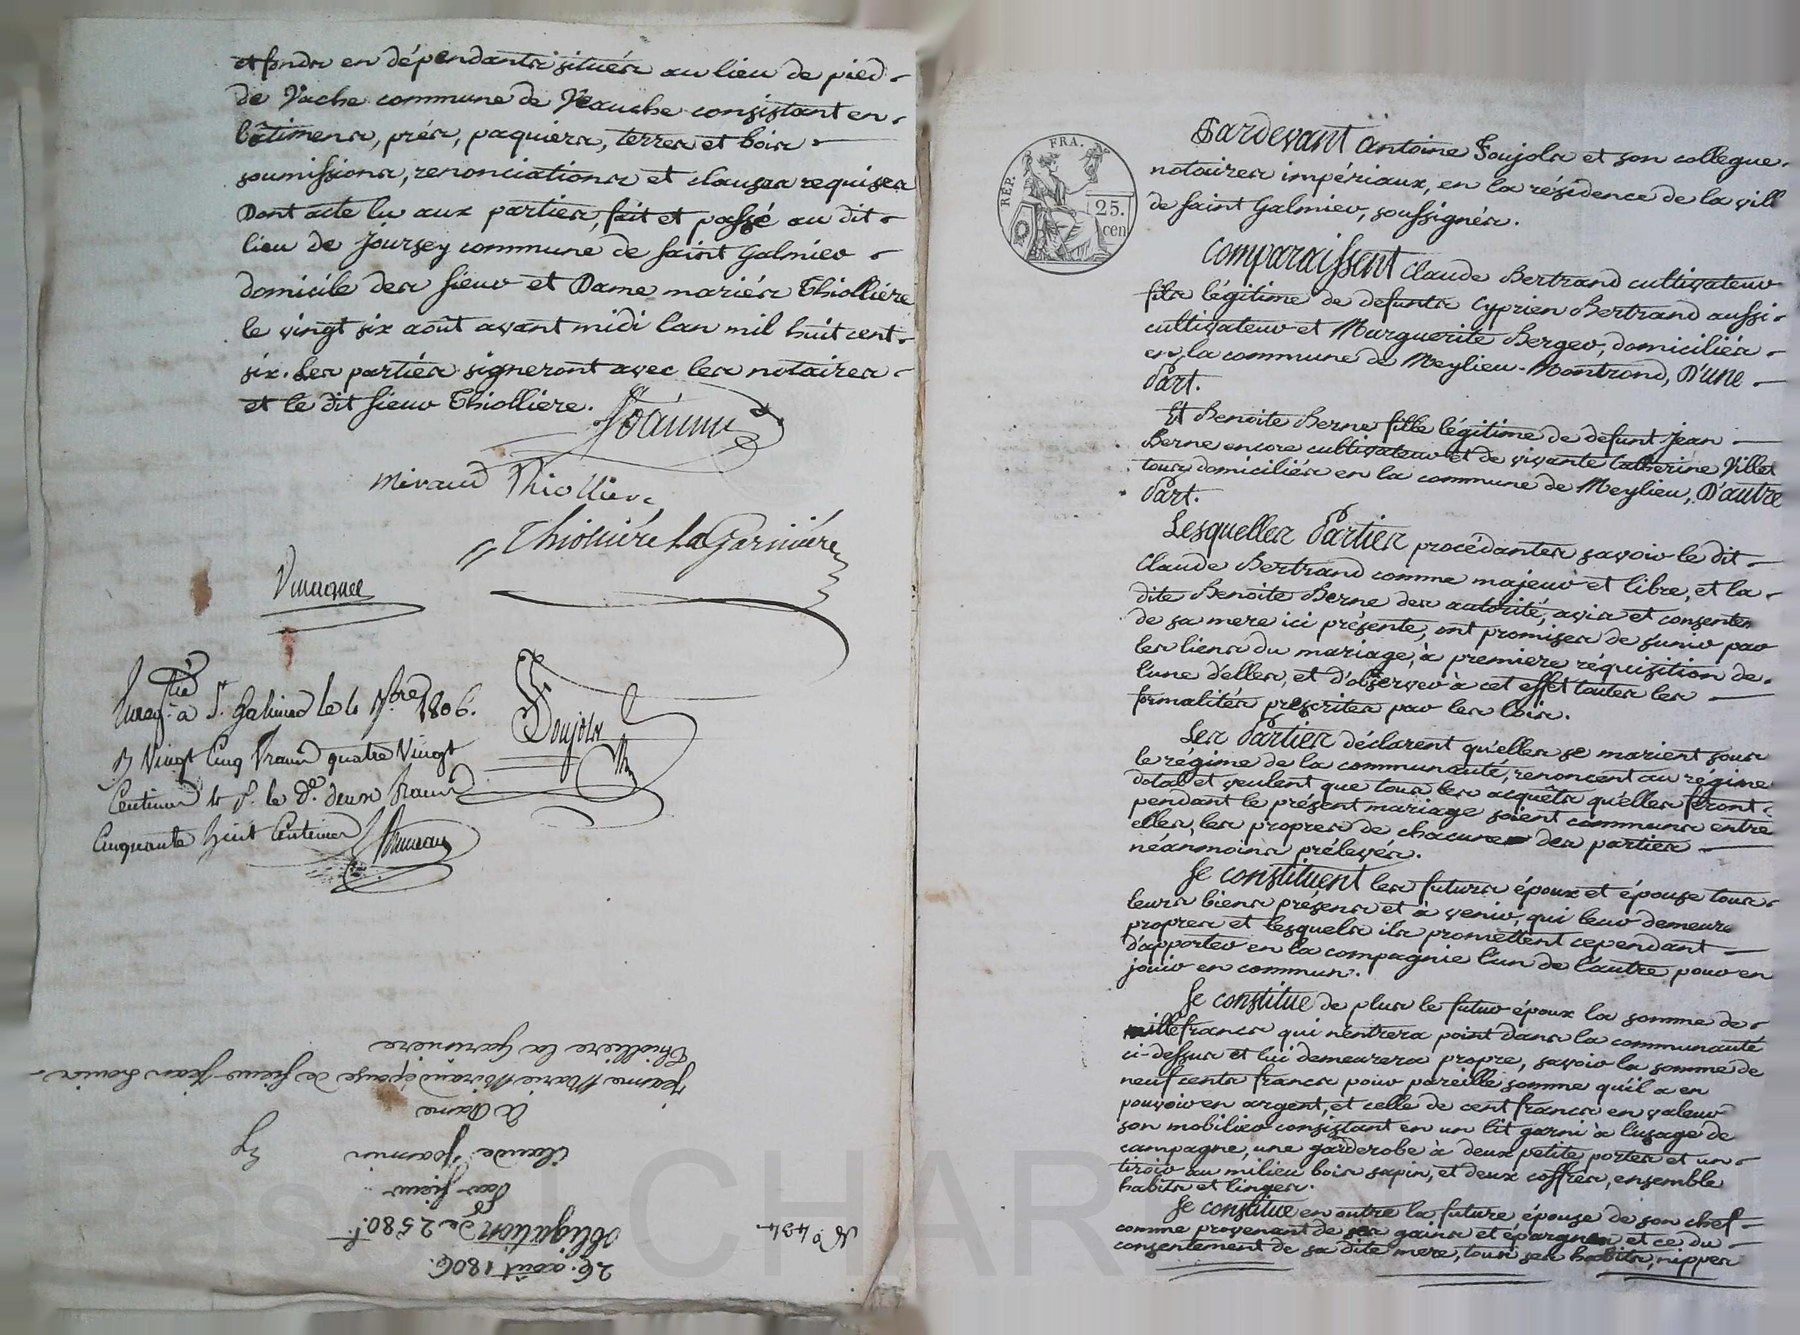 et fonds en dépendants situées au lieu de pied-
de Vache commune de Veauche consistant en-
bâtimens, prés, paquiers, terres et bois -
soumissions, renonciations et clauses requises
Dont acte lu aux parties, fait et passé au dit-
lieu de Joursey commune de saint Galmier -
domicile des sieur et Dame mariés Thiollière
le vingt six août avant midi lan mil huit cent-
six. Les parties signeront avec les notaires -
et le dit sieur Thiollière.
Joannin
Miraud Thiolliere
Thiollière La Garinière
Soujols
à St Galmier le 4 7bre 1806.
Vingt Cinq francs quatre Vingt
Centimes le d.e deux francs
Cinquante huit Centimes
26. août 1806.
Obligation de 2580 f.
Par sieur
Claude Joannin
à Dame
Jeanne Marie Miraud épouse de sieur Jean Louis-
Thiolliere la Garinière
No. 434
REP. FRA.
25.
cen
Pardevant Antoine Soujols et son collegue-
notaires impériaux, en la résidence de la vill
de saint Galmier, soussignés.
Comparaissent Claude Bertrand cultivateur
fils légitime de defunts Cyprien Bertrand aussi-
cultivateur et Marguerite Berger, domiciliés-
en la commune de Meylieu-Montrond, D'une -
Part.
Et Benoite Berne fille légitime de defunt Jean -
Berne encore cultivateur et de vivante Catherine Villet
tous domiciliés en la commune de Meylieu, D'autre
Part.
Lesquelles Parties procédantes savoir le dit -
Claude Bertrand comme majeur et libre, et la -
dite Benoite Berne des autorité, avis et consente
de sa mere ici présente, ont promises de s'unir par
les liens du mariage, à premiere réquisition de-
l'une d'elles, et d'observer à cet effet toutes les -
formalités prescrites par les lois.
Les Parties déclarent qu'elles se marient sous
le régime de la communauté, renoncent au régime
dotal et veulent que tous les acquêts qu'elles feront-
pendant le présent mariage soient communs entre
elles, les propres de chacune des parties -
néanmoins prélevés.
Se constituent les futurs époux et épouse tous-
leurs biens presens et à venir, qui leur demeure
propres et lesquels ils promettent cependant -
d'apporter en la compagnie l'un de l'autre pour en
jouir en commun.
Se constitue de plus le futur époux la somme de-
mille francs qui n'entrera point dans la communauté
ci-dessus et lui demeurera propre, savoir la somme de
neuf cents francs pour pareille somme qu'il a en
pouvoir en argent, et celle de cent francs en valeur
son mobilier consistant en un lit garni à l'usage de
campagne, une garderobe à deux petite portes et un-
tiroir au milieu bois sapin, et deux coffres, ensemble
habits et linges.
Se constitue en outre la future épouse de son chef-
comme provenant de ses gains et épargnes et ce du -
consentement de sa dite mere, tous ses habits, nippes